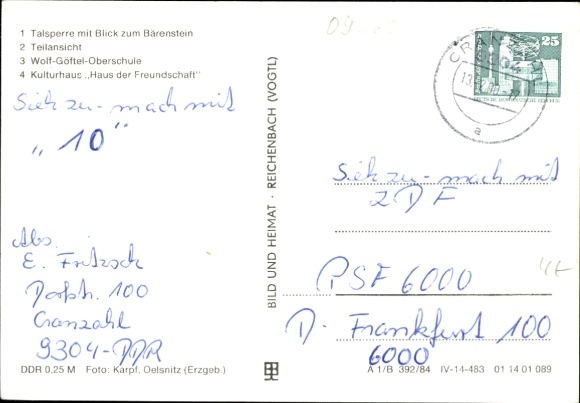 1 Talsperre mit Blick zum Bärenstein
2 Teilansicht
3 Wolf-Göftel-Oberschule
4 Kulturhaus „Haus der Freundschaft"
Sieh zu - mach mit
„10"
Abs.
E. Fritzsch
Dorfstr. 100
Cranzahl
9304-DDR
DDR 0,25 M Foto: Karpf, Oelsnitz (Erzgeb.)
BILD UND HEIMAT · REICHENBACH (VOGTL)
09
CRANZAHL
9304
a
25
Sieh zu - mach mit
ZDF
PSF 6000
D. Frankfurt 100
6000
A 1/B 392/84 IV-14-483 01 14 01 089